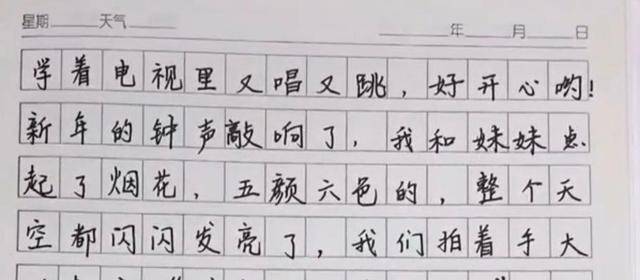 星期 天气 年 月 日
学着电视里又唱又跳，好开心哟！
新年的钟声敲响了，我和妹妹点
起了烟花，五颜六色的，整个天
空都闪闪发亮了，我们拍着手大